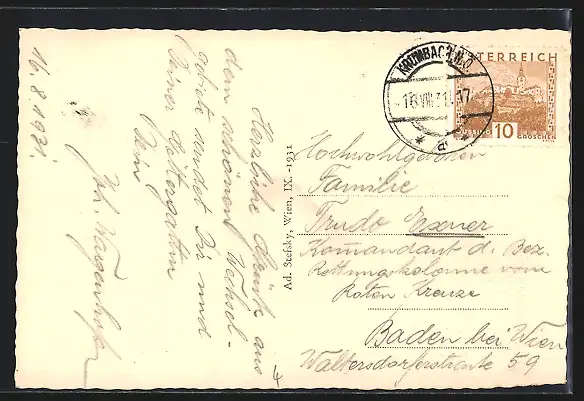 16.8.1931.
Herzliche Grüße aus
dem schönen Wechsel-
gebiete sendet Dir und
Deiner Gattin
Dein
Joh.
Ad. Stefsky, Wien, IX. -1931
KRUMBACH, N.Ö.
16.VIII.31 17
* a *
ÖSTERREICH
GÜSSING 10 GROSCHEN
Hochwohlgeboren
Familie
Trudo Exner
Kommandant d. Bez.
Rettungskolonne vom
Roten Kreuze
Baden bei Wien
Waltersdorferstraße 59